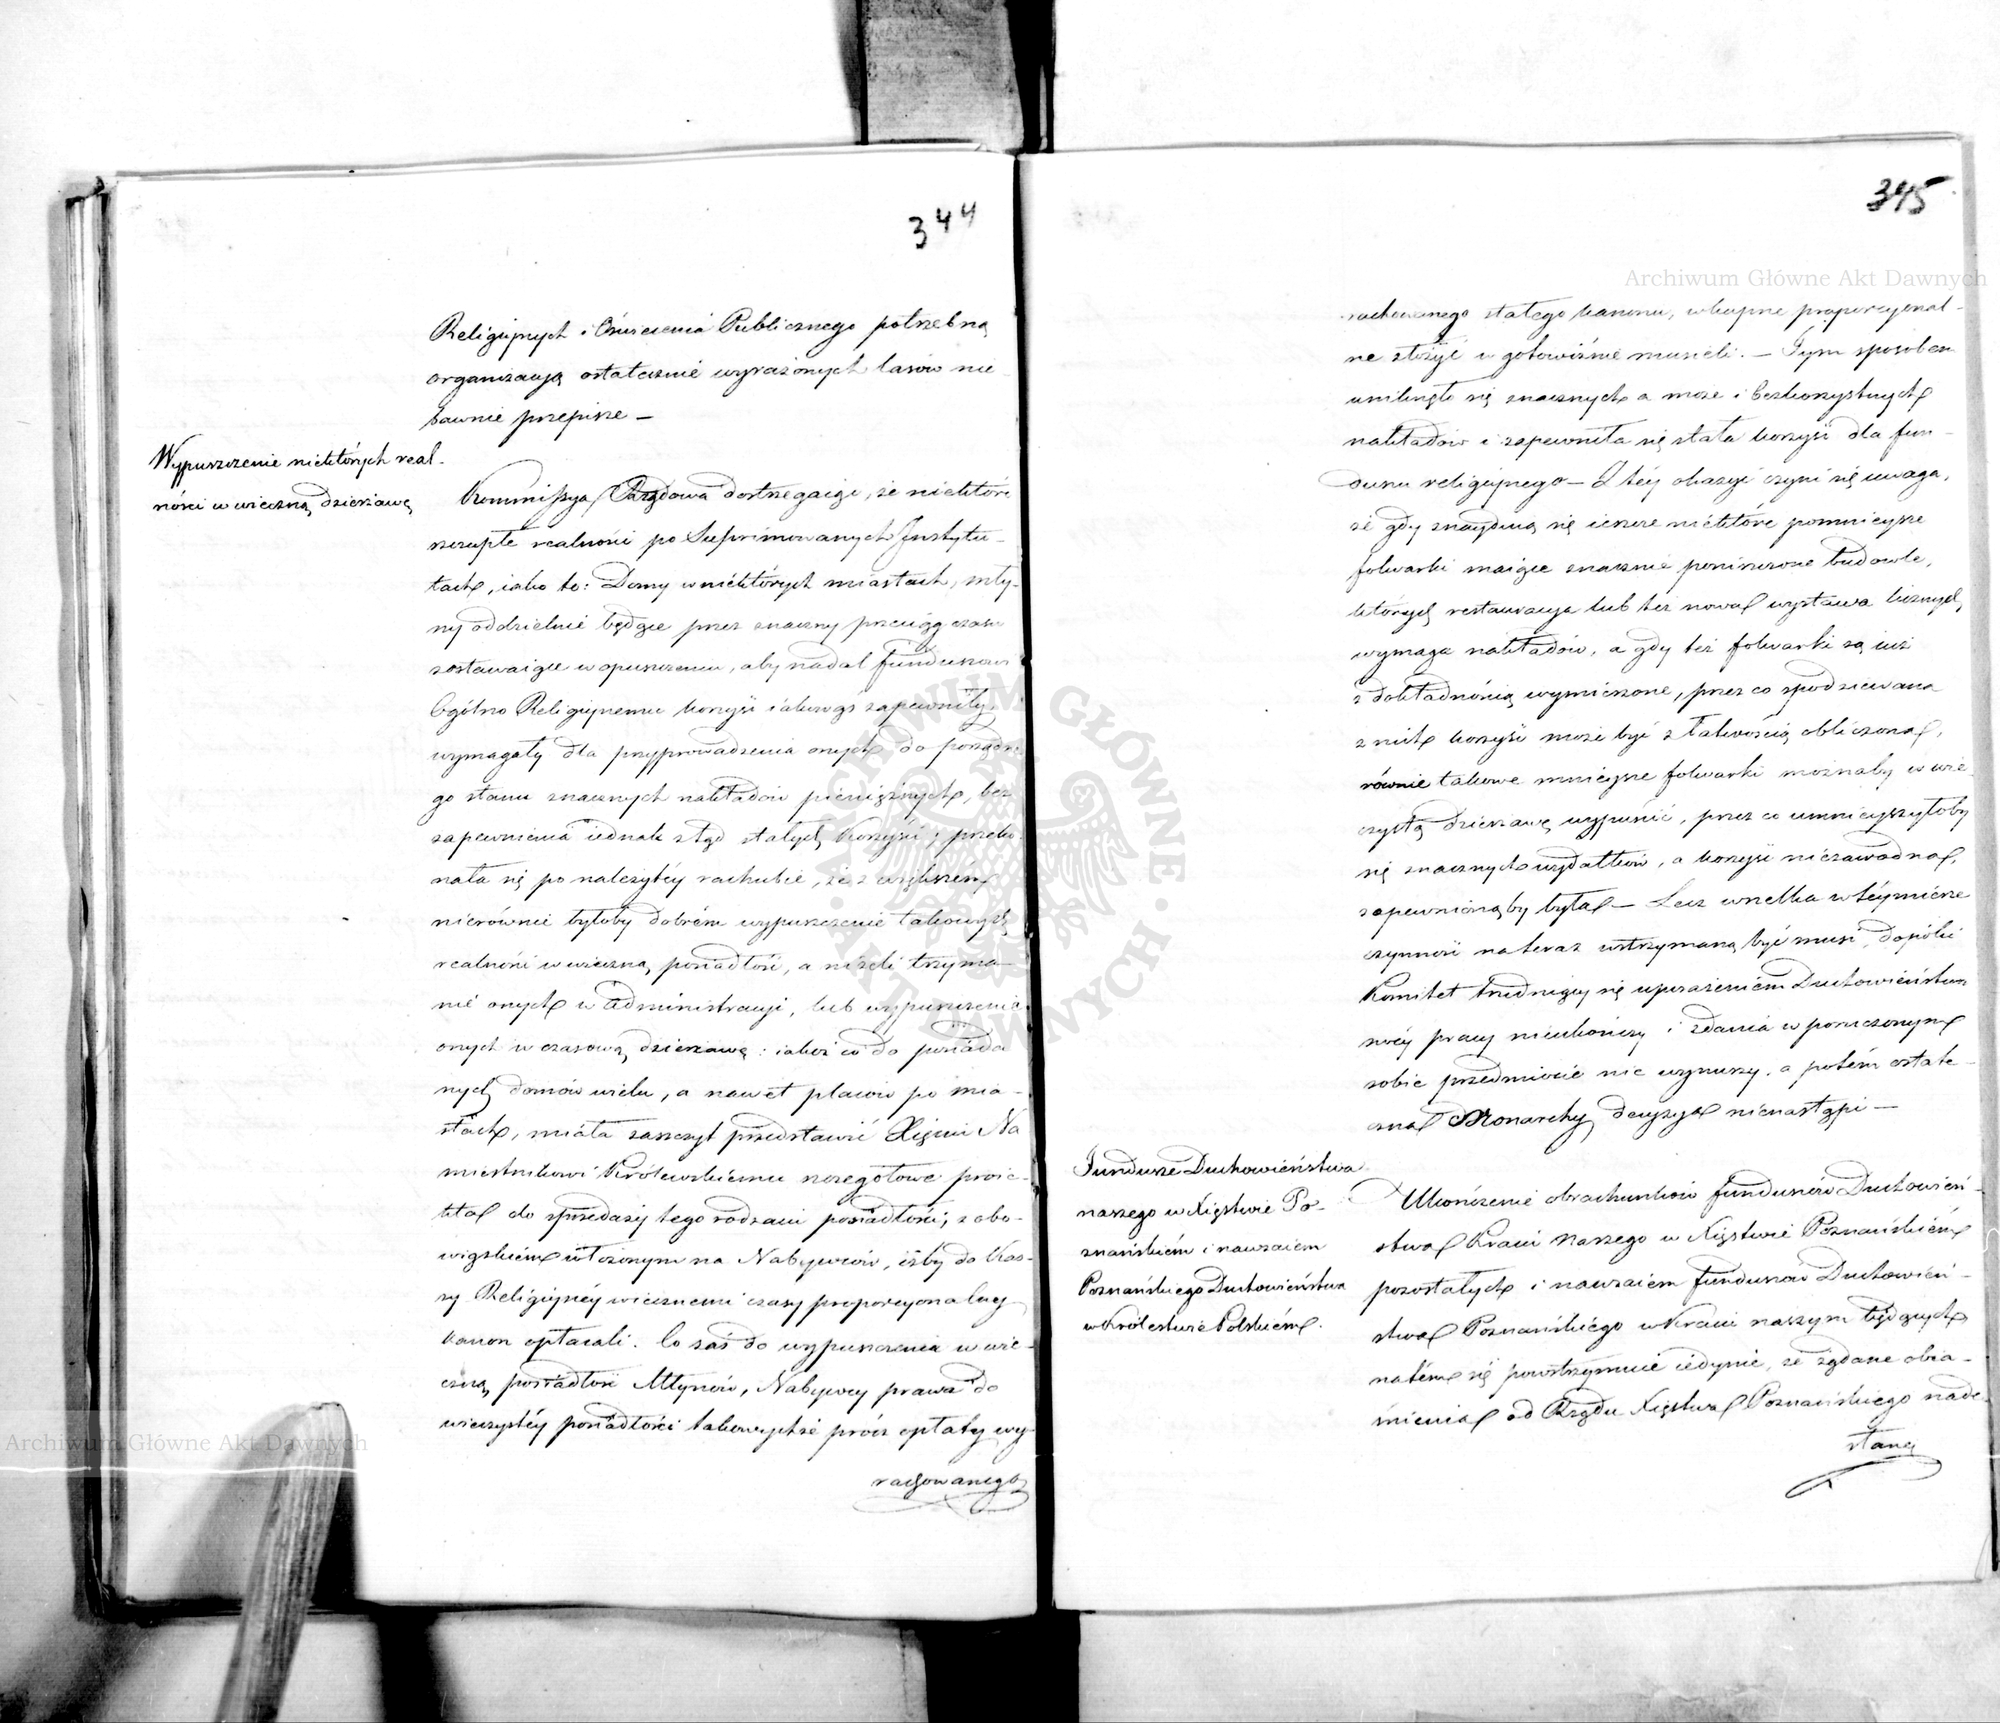 344
Religiynych i Oświecenia Publicznego potrzebną
organizacyą ostatecznie wyrażonych lasów nie
bawnie przepisze —
Wypuszczenie niektórych real-
ności w wieczną dzierżawę
Kommissya Rządowa dostrzegaiąc, że niektóre
szczupłe realności po Suprimowanych Instytu-
tach, iako to: Domy w niektórych miastach, mły-
ny oddzielnie będące przez znaczny przeciąg czasu
zostawaiąc w opuszczeniu, aby nadal funduszowi
Ogólno Religiynemu korzyści iakowąś zapewniły,
wymagały dla przyprowadzenia onych do porządne
go stanu znacznych nakładów pieniężnych, bez
zapewnienia iednak ztąd stałych korzyści; przeko-
nała się po należytéy rachubie, że z większém
nierównie byłoby dobrém wypuszczenie takowych
realności w wieczną posiadłość, a niżeli trzyma-
nie onych w Administracyi, lub wypuszczenie
onych w czasową dzierżawę: iakoż co do posiada
nych domów wielu, a nawet placów po mia-
stach, miała zaszczyt przedstawić Xięciu Na
miestnikowi Królewskiemu szczegółowe proie-
kta do sprzedaży tego rodzaiu posiadłości, z obo-
wiązkiem włożonym na Nabywców, iżby do Kas-
sy Religiynéy wiecznemi czasy proporcyonalny
kanon opłacali. Co zaś do wypuszczenia w wie-
czną posiadłość Młynów, Nabywcy prawa do
wieczystéy posiadłości takowychże prócz opłaty wy-
rachowanego
345
rachowanego stałego kanonu, wkupne proporcyonal-
ne złożyć w gotowiźnie musieli. — Tym sposobem
uniknęło się znacznych a może i bezkorzystnych
nakładów i zapewniła się stała korzyść dla fun-
duszu religiynego — Z téy okazyi czyni się uwaga,
że gdy znayduią się ieszcze niektóre pomnieysze
folwarki maiące znacznie poniszczone budowle,
których restauracya lub też nowa wystawa licznych
wymaga nakładów, a gdy też folwarki są iuż
z dokładnością wymierzone, przez co spodziewana
z nich korzyść może być z łatwością obliczona,
równie takowe mnieysze folwarki możnaby w wie-
czystą dzierżawę wypuścić, przez co umnieyszyłoby
się znacznych wydatków, a korzyść niezawodna,
zapewnioną by była — Lecz wszelka w téy mierze
czynność na teraz wstrzymaną być musi, dopóki
Komitet trudniący się uposażeniem Duchowieństwa
swéy pracy nieukończy i zdania w poruczonym
sobie przedmiocie nie wynurzy, a potém ostate-
czna Monarchy decyzya nienastąpi —
Fundusze Duchowieństwa
naszego w Xięstwie Po-
znańskiém i nawzaiem
Poznańskiego Duchowieństwa
w Królestwie Polskiém.
Ukończenie obrachunków funduszów Duchowień-
stwa Kraiu naszego w Xięstwie Poznańskiém
pozostałych i nawzaiem funduszów Duchowień-
stwa Poznańskiego w Kraiu naszym będących
natém się powstrzymuie iedynie, że żądane obia-
śnienia od Rządu Xięstwa Poznańskiego nade-
słane
Archiwum Główne Akt Dawnych
Archiwum Główne Akt Dawnych
ARCHIWUM GŁÓWNE AKT DAWNYCH